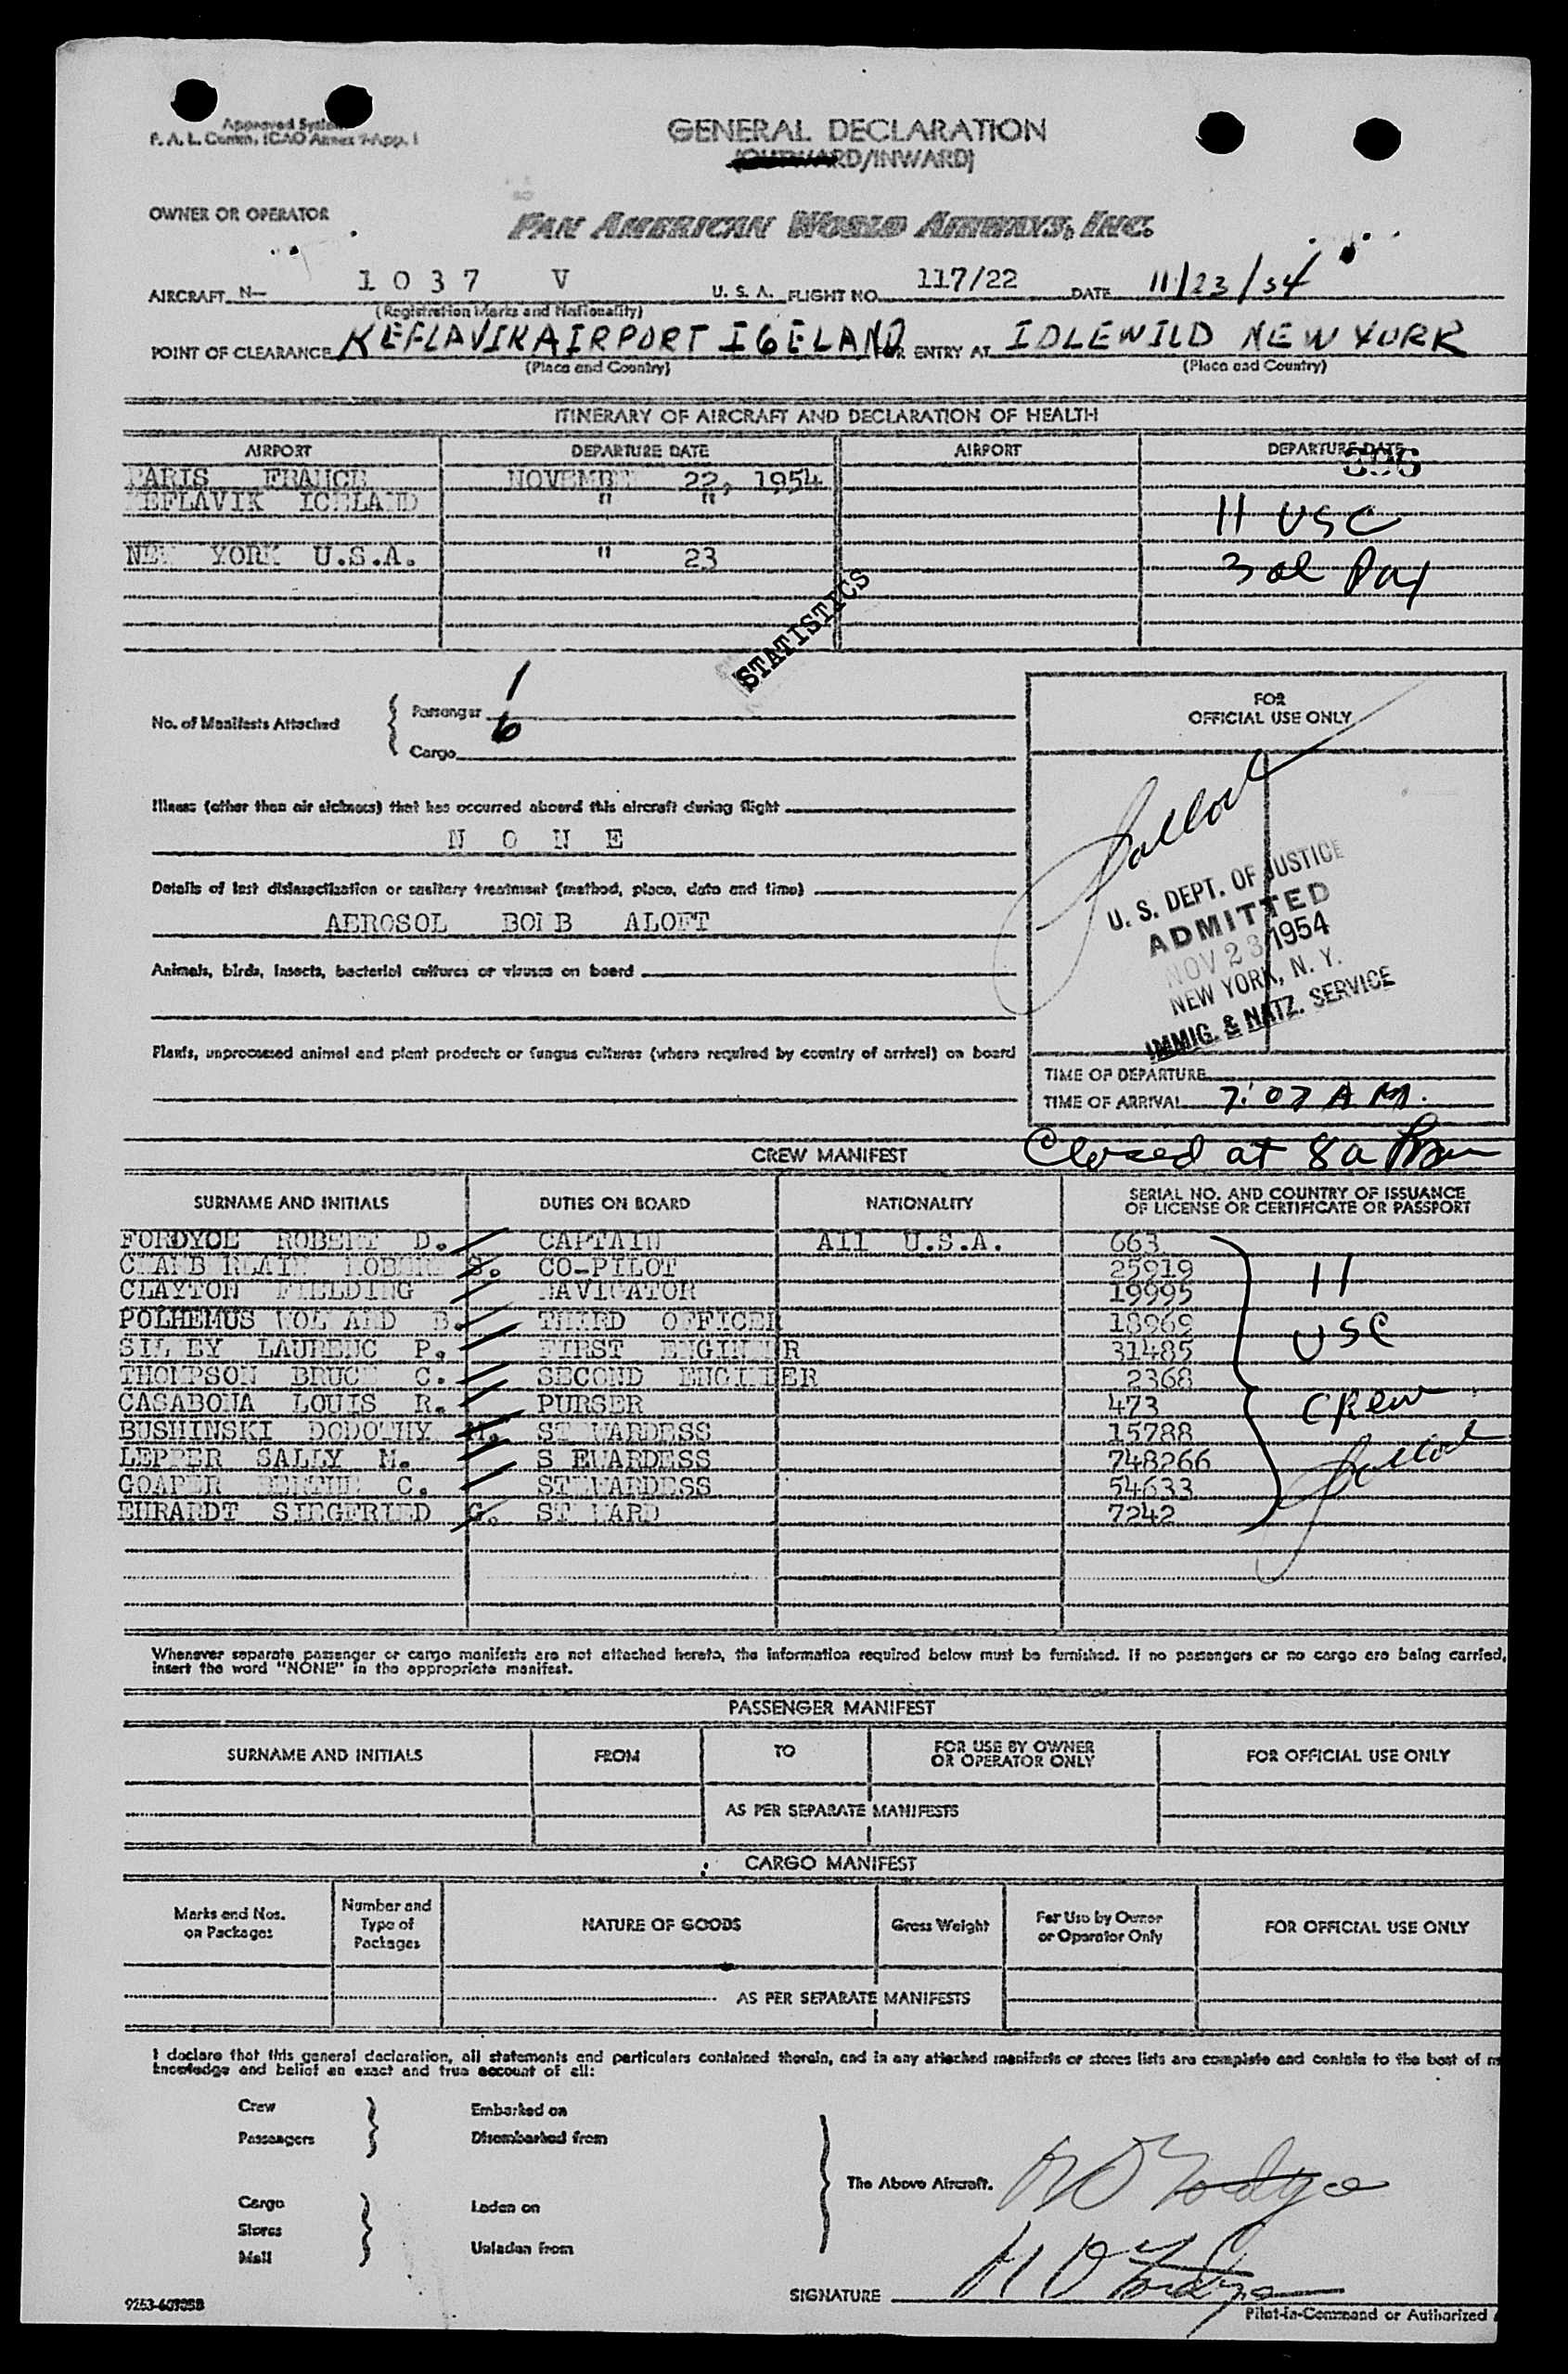 Approved System
F. A. L. Comm. ICAO Annex 9-App. 1
GENERAL DECLARATION
(OUTWARD/INWARD)
OWNER OR OPERATOR
PAN AMERICAN WORLD AIRWAYS, INC.
AIRCRAFT N- 1 0 3 7 V U. S. A. FLIGHT NO. 117/22 DATE 11/23/54
(Registration Marks and Nationality)
POINT OF CLEARANCE KEFLAVIK AIRPORT ICELAND FOR ENTRY AT IDLEWILD NEW YORK
(Place and Country) (Place and Country)
ITINERARY OF AIRCRAFT AND DECLARATION OF HEALTH
AIRPORT DEPARTURE DATE AIRPORT DEPARTURE DATE
PARIS FRANCE NOVEMBER 22, 1954
KEFLAVIK ICELAND " "
11 USC
NEW YORK U.S.A. " 23
3 al Pax
STATISTICS
No. of Manifests Attached
Passenger 1
Cargo 6
FOR
OFFICIAL USE ONLY
Illness (other than air sickness) that has occurred aboard this aircraft during flight
N O N E
Details of last disinsectization or sanitary treatment (method, place, date and time)
AEROSOL BOMB ALOFT
Animals, birds, insects, bacterial cultures or viruses on board
Plants, unprocessed animal and plant products or fungus cultures (where required by country of arrival) on board
U. S. DEPT. OF JUSTICE
ADMITTED
NOV 23 1954
NEW YORK, N. Y.
IMMIG. & NATZ. SERVICE
TIME OF DEPARTURE
TIME OF ARRIVAL 7:07 A M.
Closed at 8a
CREW MANIFEST
SURNAME AND INITIALS DUTIES ON BOARD NATIONALITY SERIAL NO. AND COUNTRY OF ISSUANCE
OF LICENSE OR CERTIFICATE OR PASSPORT
FORDYCE ROBERT D. CAPTAIN All U.S.A. 663
CHAMBERLAIN ROBERT S. CO-PILOT 25919
CLAYTON FIELDING NAVIGATOR 19995
POLHEMUS B. THIRD OFFICER 18969
LAURENC P. FIRST ENGINEER 31485
THOMPSON BRUCE C. SECOND ENGINEER 2368
CASABONA LOUIS R. PURSER 473
BUSHINSKI DODOTHY M. STEWARDESS 15788
LEPPER SALLY M. STEWARDESS 748266
C. STEWARDESS 54633
EHRARDT SIEGFRIED G. STEWARD 7242
11
USC
Crew
Whenever separate passenger or cargo manifests are not attached hereto, the information required below must be furnished. If no passengers or no cargo are being carried,
insert the word "NONE" in the appropriate manifest.
PASSENGER MANIFEST
SURNAME AND INITIALS FROM TO FOR USE BY OWNER
OR OPERATOR ONLY FOR OFFICIAL USE ONLY
AS PER SEPARATE MANIFESTS
CARGO MANIFEST
Marks and Nos.
on Packages
Number and
Type of
Packages
NATURE OF GOODS
Gross Weight
For Use by Owner
or Operator Only
FOR OFFICIAL USE ONLY
AS PER SEPARATE MANIFESTS
I declare that this general declaration, all statements and particulars contained therein, and in any attached manifests or stores lists are complete and contain to the best of m
knowledge and belief an exact and true account of all:
Crew
Passengers
Embarked on
Disembarked from
The Above Aircraft.
R D Fordyce
Cargo
Stores
Mail
Laden on
Unladen from
SIGNATURE R D Fordyce
Pilot-in-Command or Authorized